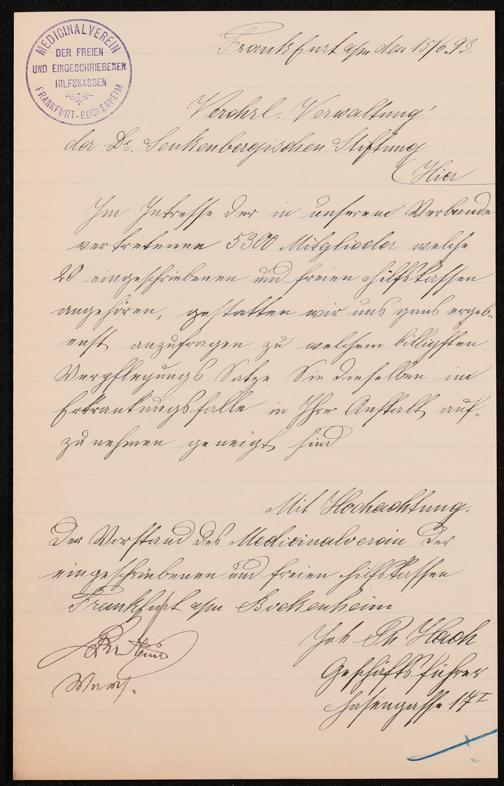 MEDICINALVEREIN
DER FREIEN
UND EINGESCHRIEBENEN
HILFSKASSEN
FRANKFURT-BOCKENHEIM
Frankfurt a/m den 15/6.93.
Verehrl. Verwaltung!
der Dr. Senkenbergischen Stiftung
Hier
Im Intresse der in unserem Verbande
vertretenen 5300 Mitglieder welche
26 eingeschriebenen und freien Hilfskassen
angehören, gestatten wir uns ganz ergeb-
enst anzufragen zu welchem billigsten
Verpflegungs Satze Sie dieselben im
Erkrankungsfalle in Ihre Anstalt auf-
zunehmen geneigt sind
Mit Hochachtung.
Der Vorstand des Medicinalverein der
eingeschriebenen und freien Hilfskassen
Frankfurt a/m Bockenheim
Joh Ph Hach
Geschäftsführer
Hasengasse 17 I